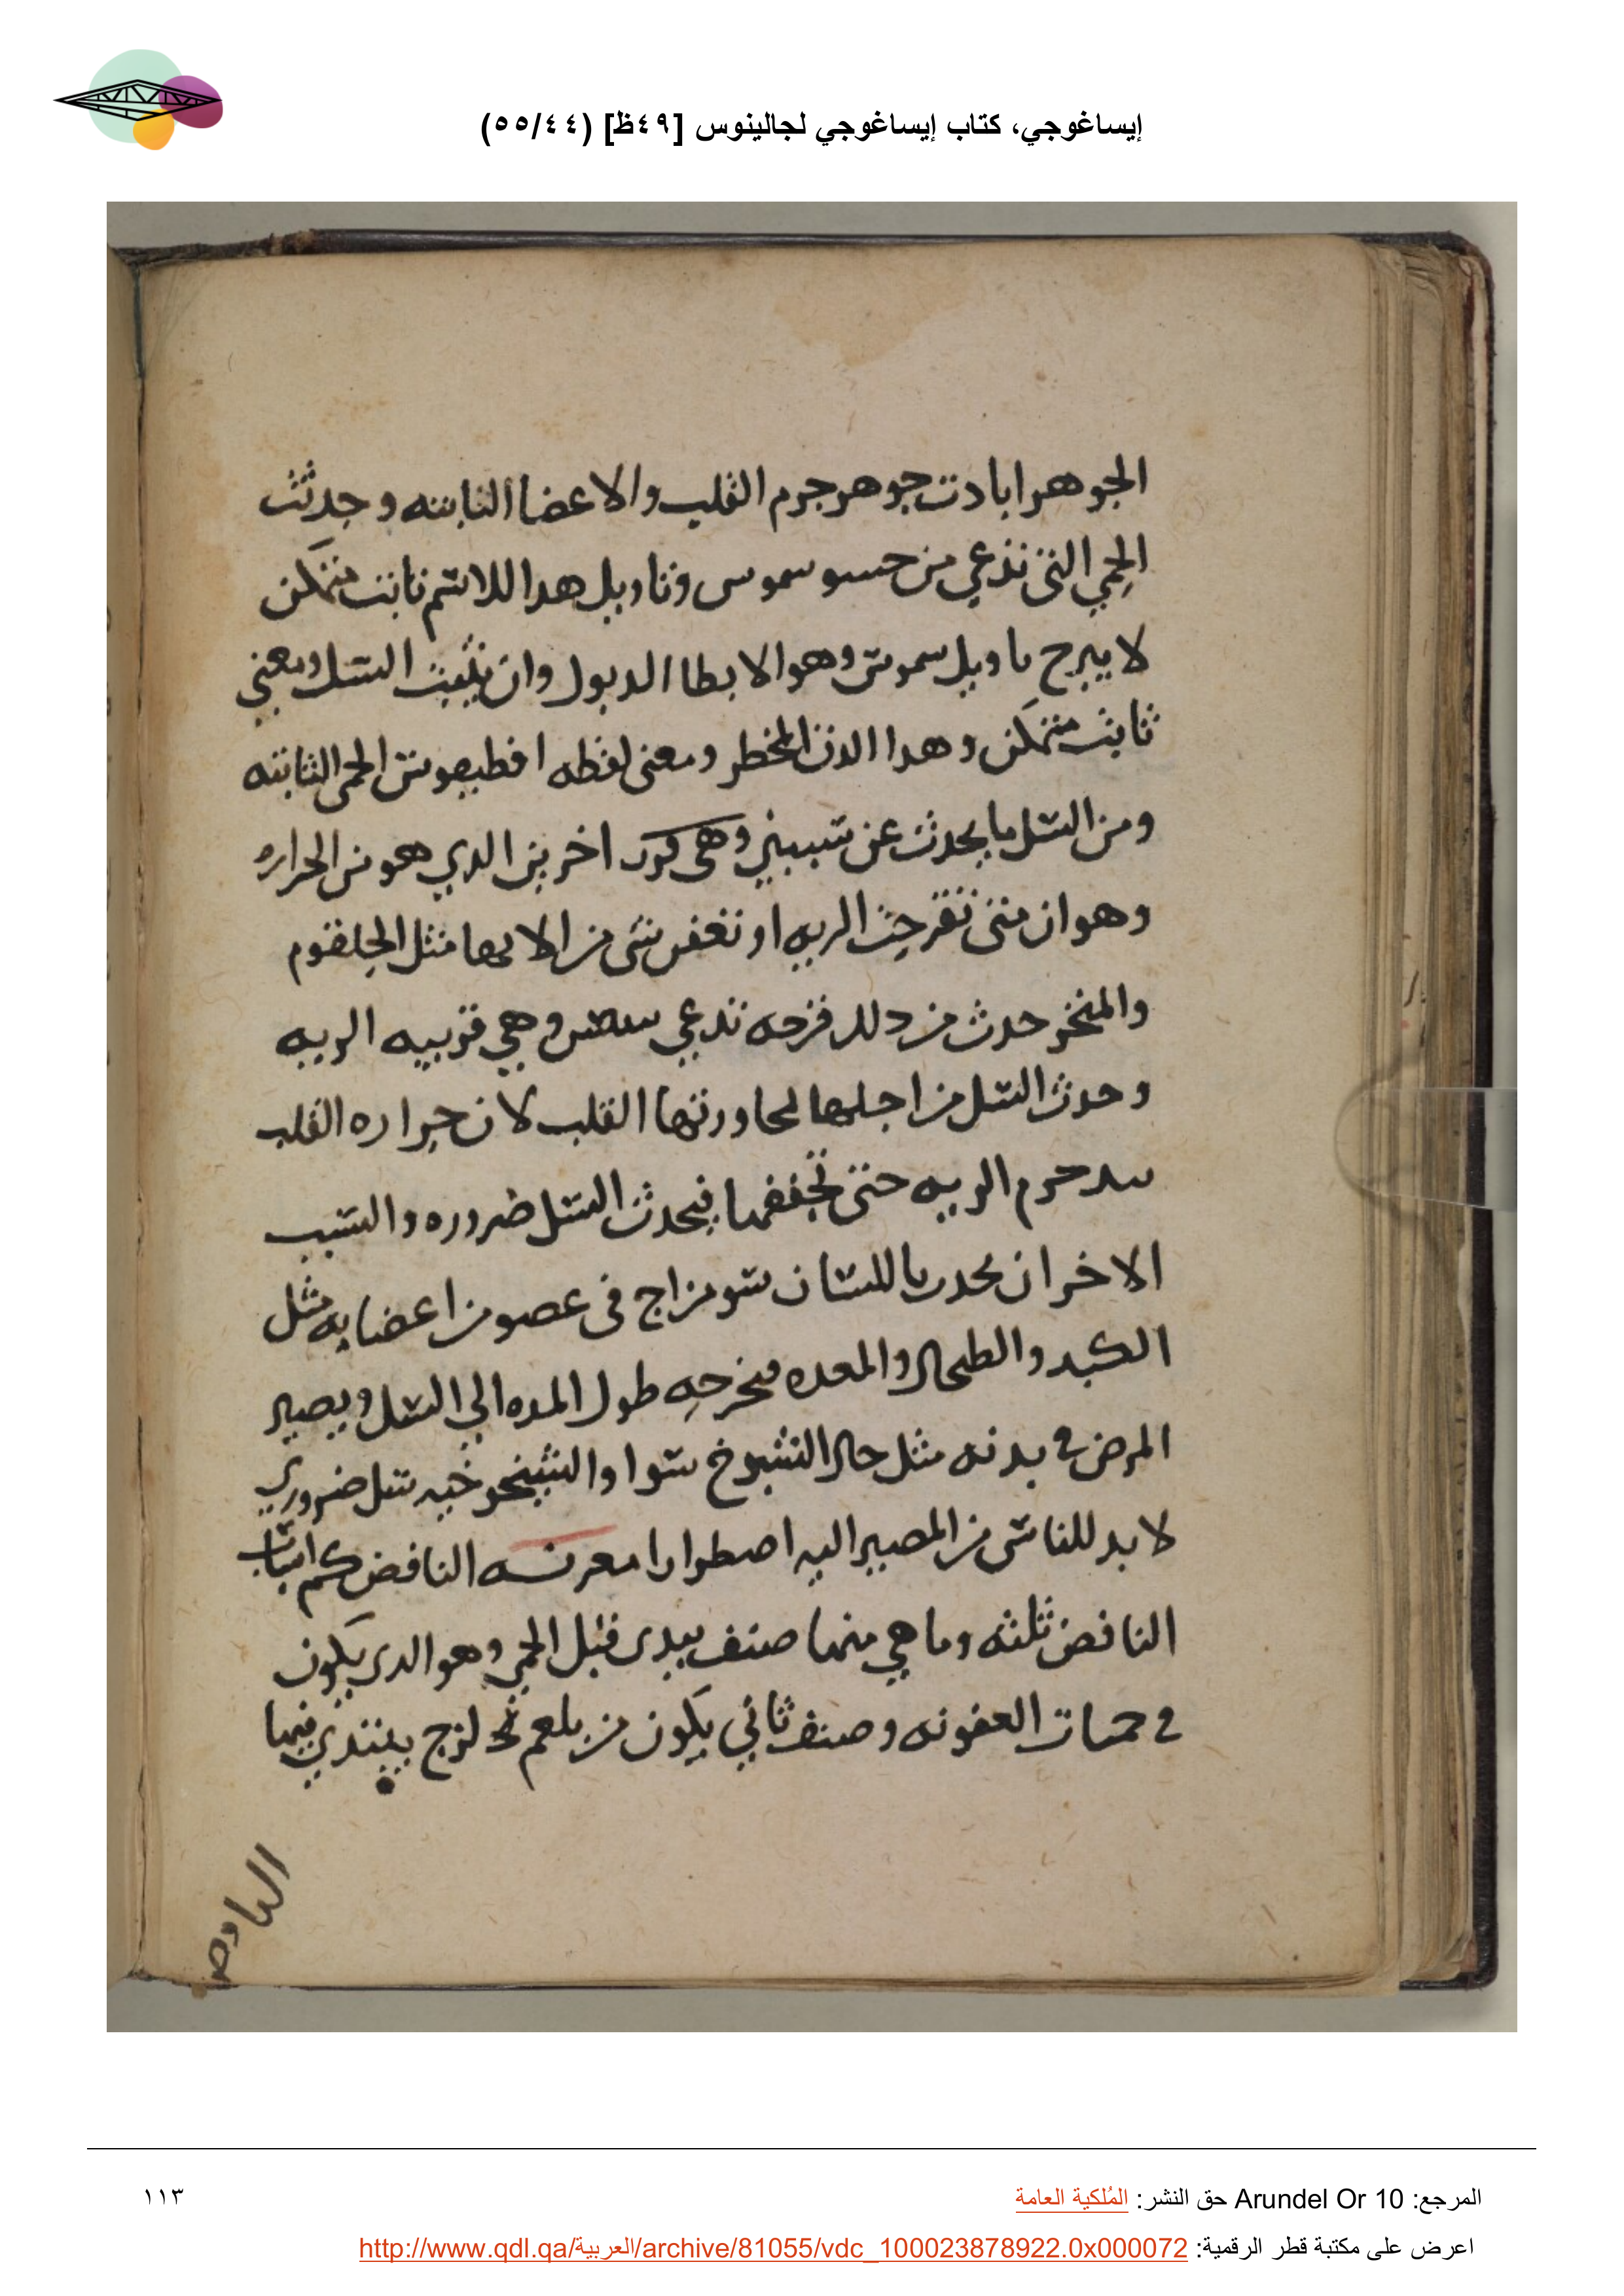 إيساغوجي، كتاب إيساغوجي لجالينوس [٤٩ظ] (٥٥/٤٤)
الجوهر ابادت جوهر جرم القلب والاعضا الثابته وحدثت
الحمي التى تدعي من حسو سموس وتاويل هدا اللاسم ثابت متمكن
لا يبرح تاويل سموس وهو الابطا الدبول وان يثبت السل ومعني
ثابت متمكن وهدا الدق المخطر ومعنى لفظه افطيقوس الحمى الثابته
ومن السل ما يحدث عن سببين وهى كرد اخر بين الدي هو من الحراره
وهو ان متى تقرحت الريه او تعفن شى من الاتها مثل الحلقوم
والمنخر حدث من دلك قرحه تدعي وهي قريبه الريه
وحدث السل من اجلها لمجاورتها القلب لان حراره القلب
جرم الريه حتى تجففها فيحدث السل ضروره والسبب
الاخر ان يحدث باللسان سو مزاج فى عضو من اعضايه مثل
الكبد والطحال والمعده فيخرجه طول المده الي السل ويصير
المرض في بدنه مثل حال الشيوخ سوا والشيخوخيه سل ضروري
لا بد للناس من المصير اليه اصطرارا معرفه النافض كم اسباب
النافض ثلثه وما هي منها صنف يبدى قبل الحمي وهو الدى يكون
في حميات العفونه وصنف ثاني يكون من بلغم لزج يبتدي فيها
النافض
المرجع: Arundel Or 10 حق النشر: المُلكية العامة
١١٣
اعرض على مكتبة قطر الرقمية: http://www.qdl.qa/العربية/archive/81055/vdc_100023878922.0x000072